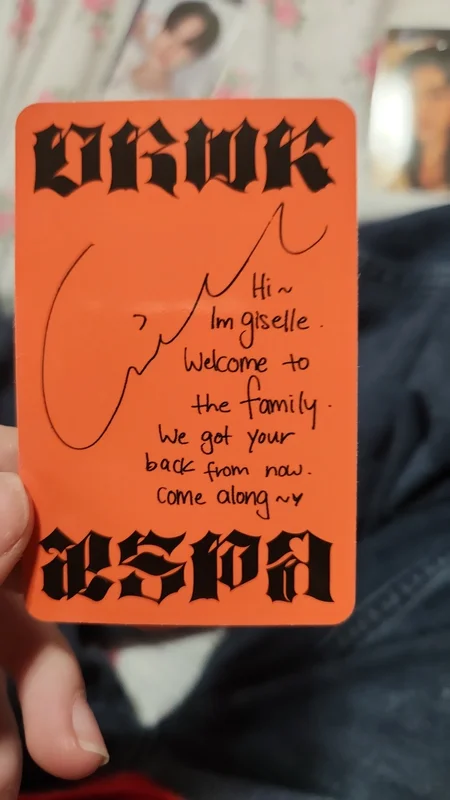 DRWK
Hi~
Im giselle.
Welcome to
the family.
We got your
back from now.
Come along ~♥
æSPA